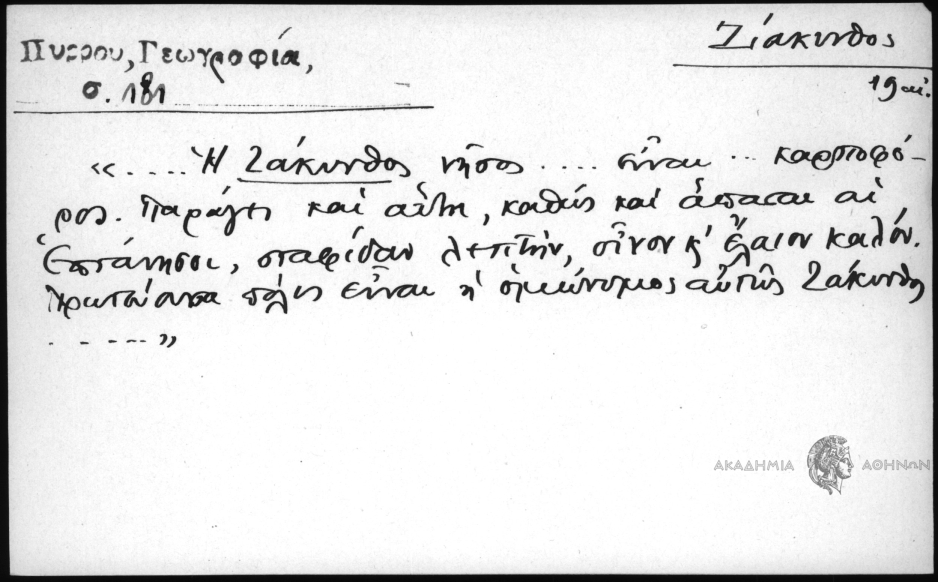 Πυρρου, Γεωγροφία,
σ. 181
Ζάκυνθος
19 αι.
« .... Ἡ Ζάκυνθος νῆσος .... εἶναι .. καρποφό-
ρος. Παράγει καὶ αὕτη, καθὼς καὶ ἅπασαι αἱ
Ἑπτάνησοι, σταφίδαν λεπτὴν, οἶνον κ' ἔλαιον καλόν.
Πρωτεύουσα πόλις εἶναι ἡ ὁμώνυμος αὐτῆς Ζάκυνθος
..... »
ΑΚΑΔΗΜΙΑ ΑΘΗΝΩΝ